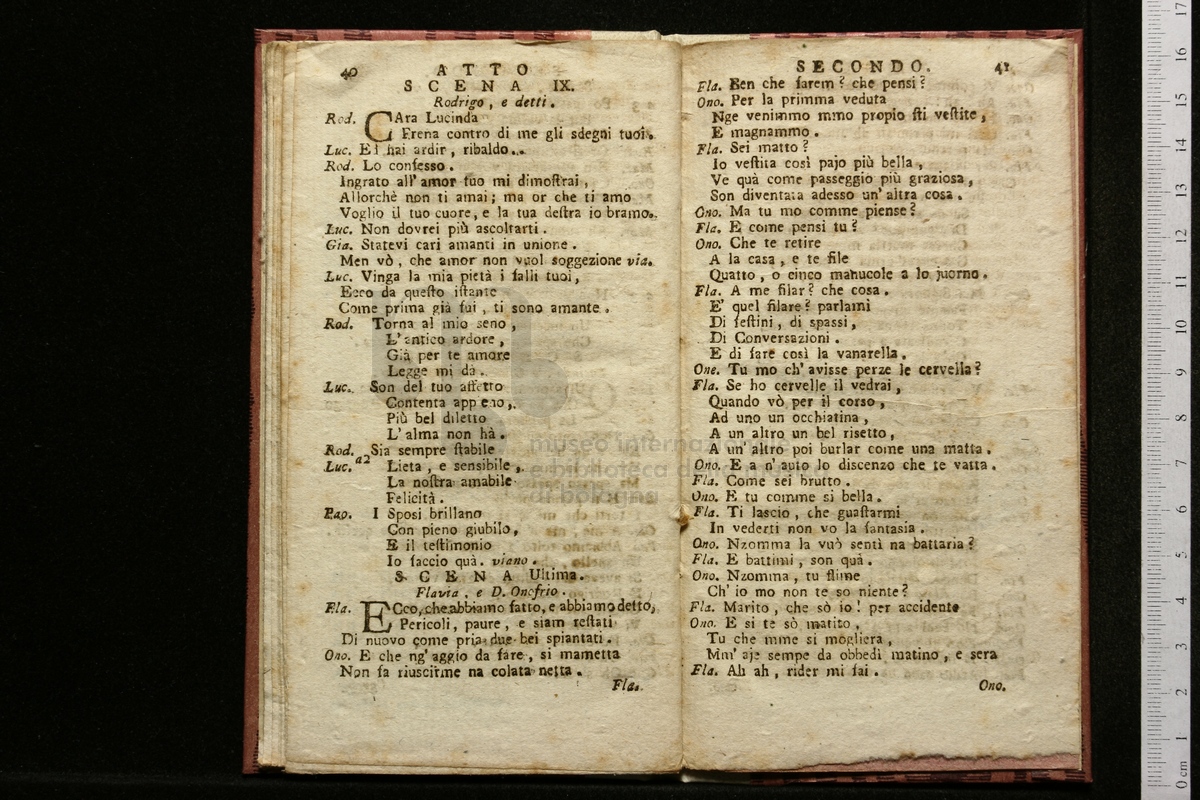 40 ATTO
SCENA IX.
Rodrigo, e detti.
Rod. CAra Lucinda
Frena contro di me gli sdegni tuoi.
Luc. Ed hai ardir, ribaldo..
Rod. Lo confesso.
Ingrato all'amor tuo mi dimostrai,
Allorchè non ti amai; ma or che ti amo
Voglio il tuo cuore, e la tua destra io bramo.
Luc. Non dovrei più ascoltarti.
Gia. Statevi cari amanti in unione.
Men vò, che amor non vuol soggezione via.
Luc. Vinga la mia pietà i falli tuoi,
Ecco da questo istante
Come prima già fui, ti sono amante.
Rod. Torna al mio seno,
L'antico ardore,
Già per te amore
Legge mi dà.
Luc. Son del tuo affetto
Contenta appeno,
Più bel diletto
L'alma non hà.
Rod. Sia sempre stabile
Luc. a2 Lieta, e sensibile,
La nostra amabile
Felicità.
Pap. I Sposi brillano
Con pieno giubilo,
E il testimonio
Io faccio quà. viano.
SCENA Ultima.
Flavia, e D. Onofrio.
Fla. ECco, che abbiamo fatto, e abbiamo detto,
Pericoli, paure, e siam restati
Di nuovo come pria due bei spiantati.
Ono. E che ng'aggio da fare, si mametta
Non fa riuscirme na colata netta.
Fla.
SECONDO. 41
Fla. Ben che farem? che pensi?
Ono. Per la primma veduta
Nge venimmo mmo propio sti vestite,
E magnammo.
Fla. Sei matto?
Io vestita così pajo più bella,
Ve quà come passeggio più graziosa,
Son diventata adesso un'altra cosa.
Ono. Ma tu mo comme piense?
Fla. E come pensi tu?
Ono. Che te retire
A la casa, e te file
Quatto, o cinco manucole a lo juorno.
Fla. A me filar? che cosa.
E' quel filare? parlami
Di festini, di spassi,
Di Conversazioni.
E di fare così la vanarella.
One. Tu mo ch'avisse perze le cervella?
Fla. Se ho cervelle il vedrai,
Quando vò per il corso,
Ad uno un occhiatina,
A un altro un bel risetto,
A un'altro poi burlar come una matta.
Ono. E a n'auto lo discenzo che te vatta.
Fla. Come sei brutto.
Ono. E tu comme si bella.
Fla. Ti lascio, che guastarmi
In vederti non vo la fantasia.
Ono. Nzomma la vuò sentì na battaria?
Fla. E battimi, son quà.
Ono. Nzomma, tu stime
Ch'io mo non te so niente?
Fla. Marito, che sò io! per accidente
Ono. E si te sò marito,
Tu che mme si mogliera,
Mm'aje sempe da obbedì matino, e sera
Fla. Ah ah, rider mi fai.
Ono.
museo internazionale
e biblioteca della musica
di bologna